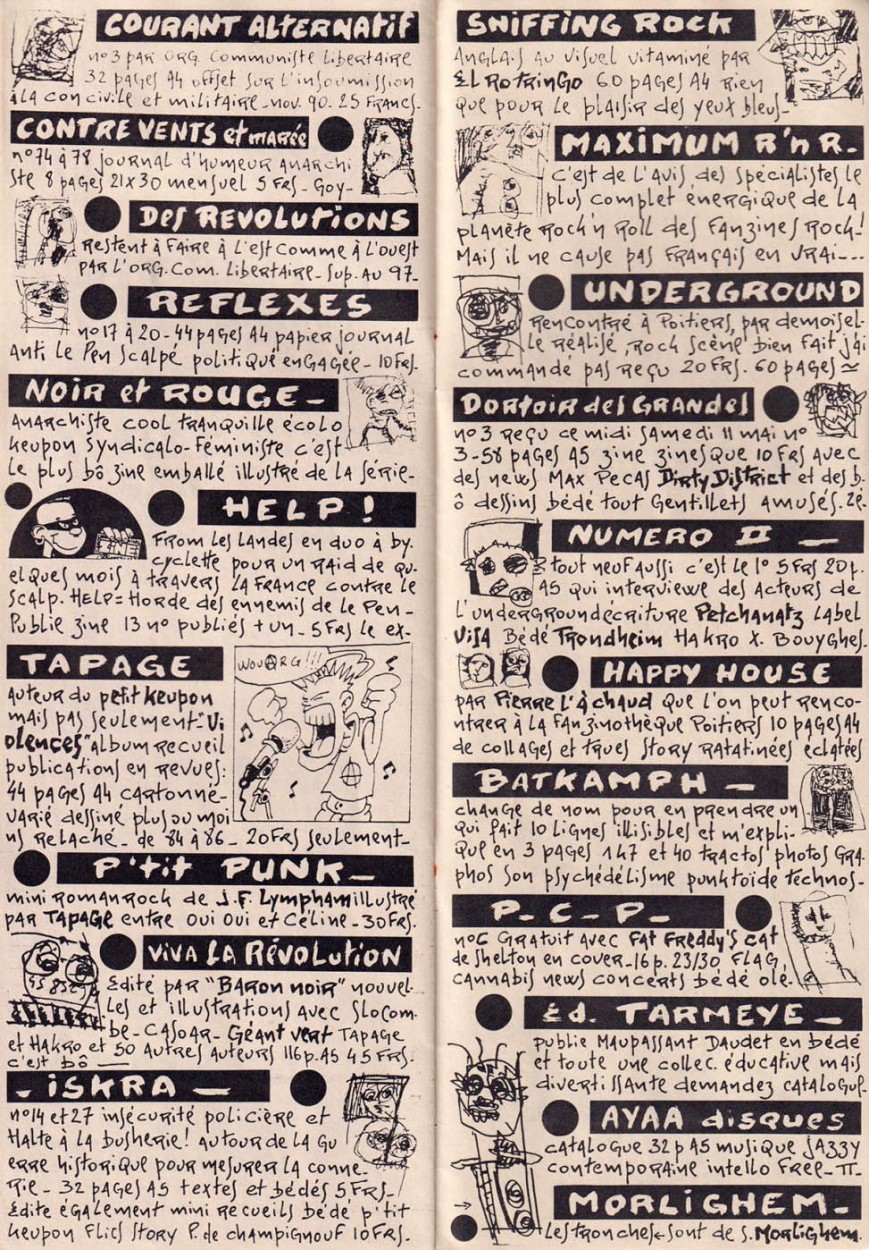 COURANT ALTERNATIF
nº3 par ORG. Communiste Libertaire
32 pages A4 offset sur l'insoumission
à la con civile et militaire_nov. 90. 25 Francs.
CONTRE VENTS et marée
nº74 à 78 journal d'humeur anarchi
ste 8 pages 21x30 mensuel 5 Frs_ Goy_
Des REVOLUTIONS
Restent à faire à l'est comme à l'ouest
par l'ORG. Com. Libertaire_ sup. au 97_
REFLEXES
nº17 à 20_44 pages A4 papier journal
Anti Le Pen Scalpé politiqué engagée_ 10Frs.
NOIR et ROUGE_
Anarchiste cool tranquille écolo
keupon syndicalo-féministe c'est
le plus bô zine emballé illustré de la série_
HELP!
From les Landes en duo à by.
cyclette pour un raid de qu.
elques mois à travers la France contre le
Scalp. HELP = Horde des ennemis de le Pen_
Publie zine 13 nº publiés + un_ 5 Frs le ex_
TAPAGE
WOUARG!!!
auteur du petit keupon
mais pas seulement_"Vi
olences" album recueil
publications en revues:
44 pages A4 cartonné_
varié dessiné plus ou moi
ns relaché_ de 84 à 86_ 20Frs seulement_
P'tit PUNK_
mini roman rock de J.F. Lymphamillustré
par TAPAGE entre Oui Oui et Céline_30Frs.
VIVA LA RévolUtiON
Edité par "Baron noir" nouvel_
les et illustrations avec Slocom_
be_ CASOAR_ Géant vert TAPAGE
et Hakro et 50 autres auteurs 116p. A5 45 Frs.
c'est bô _
_ iSKRA _
nº14 et 27 insécurité policière et
Halte à la busherie! autour de la Gu
erre historique pour mesurer la conne_
rie_ 32 pages A5 textes et bédés 5 Frs_
Edite également mini recueils bédé p'tit
keupon Flics Story P. de champignouf 10Frs.
SNIFFING ROCK
Anglais au visuel vitaminé par
EL RotRinGo 60 pages A4 Rien
que pour le plaisir des yeux bleus_
MAXIMUM R'n R_
C'est de l'avis des spécialistes le
plus complet énergique de la
planète Rock'n Roll des Fanzines Rock!
Mais il ne cause pas Français en vrai---
UNDERGROUND
Rencontré à Poitiers, par demoisel_
le réalisé, Rock scène bien fait j'ai
commandé pas reçu 20 Frs. 60 pages ≃
Dortoir des GRANDES
nº3 reçu ce midi samedi 11 mai nº
3-58 pages A5 ziné zinesque 10 Frs avec
des news Max Pecas Dirty District et des b.
ô dessins bédé tout gentillets amusés. 2é.
NUMERO II _
tout neuf aussi c'est le 1º 5 Frs 20p.
A5 qui interviewe des acteurs de
l'undergroundécriture Petchanatz Label
Visa Bédé Trondheim Hakro X. Bouyghes.
HAPPY HOUSE
par Pierre L'à chaud que l'on peut renco_
ntrer à la Fanzinothèque Poitiers 10 pages A4
de collages et trues story ratatinées éclatées
BATKAMPH _
change de nom pour en prendre un
qui fait 10 lignes illisibles et m'expli_
que en 3 pages 147 et 40 tractos photos gra.
phos son psychédélisme punktoïde technos_
P_ C_ P_
nºC Gratuit avec Fat Freddy's Cat
de Shelton en cover_16 p. 23/30 FLAG,
cannabis news concerts bédé olé.
Éd. TARMEYE _
publie Maupassant Daudet en bédé
et toute une collec. éducative mais
divertissante demandez catalogue.
AYAA disques
catalogue 32 p A5 musique jazzy
contemporaine intello Free_π_
MORLIGHEM_
→ Les tronches← sont de S. Morlighem.